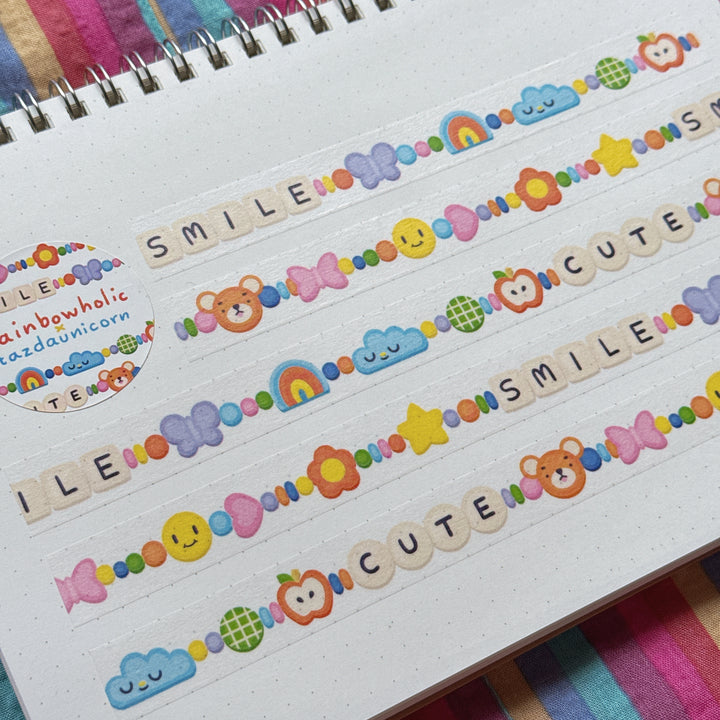 SMILE
SM
ILE
ainbowholic
x
tazdaunicorn
ITE
CUTE
SMILE
ILE
CUTE